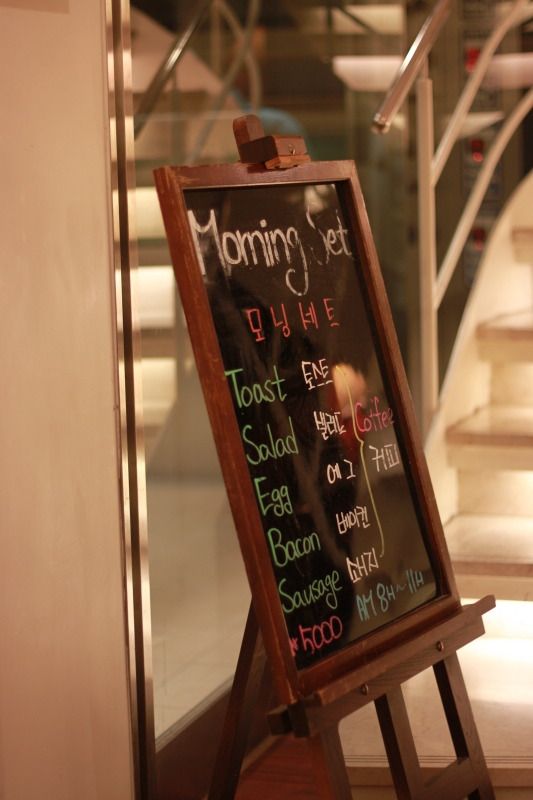 Morning Set
모닝세트
Toast 토스트
Salad 샐러드 Coffee
Egg 에그 커피
Bacon 베이컨
Sausage 소세지
₩5000 AM 8H~11H